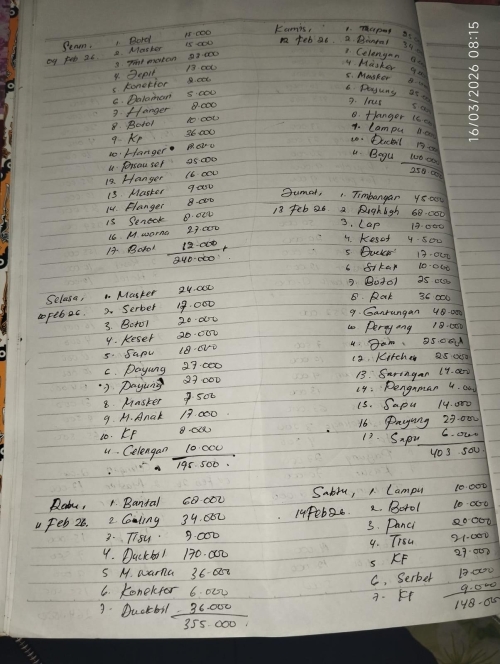 Senin,
09 Feb 26
1. Botol 15.000
2. Masker 15.000
3. Tmt makan 27.000
4. Jepit 13.000
5. Konektor 8.000
6. Dalaman 5.000
7. Hanger 8.000
8. Botol 10.000
9. KF 36.000
10. Hanger
25.000
12. Hanger 16.000
13. Masker 9.000
14. Hanger 8.000
15. Sendok 8.000
16. M. warna 27.000
17. Botol 12.000
240.000
Selasa,
10 Feb 26.
1. Masker 24.000
2. Serbet 17.000
3. Botol 20.000
4. Keset 20.000
5. Sapu 18.000
6. Payung 27.000
7. Payung 27.000
8. Masker 7.500
9. M. Anak 17.000
10. KF 8.000
11. Celengan 10.000
195.500.
Rabu,
11 Feb 26.
1. Bantal 68.000
2. Guling 34.000
3. Tisu 9.000
4. Duckbil 170.000
5 M. warna 36.000
6. Konektor 6.000
7. Duckbil 36.000
355.000.
Kamis,
12 Feb 26.
1.
2. Bantal
3. Celengan
4. Masker
5. Masker
6. Payung
7. Irus
8. Hanger
9. Lampu
10. Duckbil
11. Baju 100.000
250.000
Jumat,
13 Feb 26.
1. Timbangan 45.000
2. 68.000
3. Lap 17.000
4. Keset 4.500
5 17.000
6. Sikat 10.000
7. Botol 25.000
8. Rak 36.000
9. Gantungan 48.000
10. 18.000
11. Jam 25.000
12. Kitchen 25.000
13. Saringan 14.000
14. Pengaman 4.000
15. Sapu 14.000
16 Payung 27.000
17. Sapu 6.000
403.500
Sabtu,
14 Feb 26.
1. Lampu 10.000
2. Botol 10.000
3. Panci 20.000
4. Tisu 21.000
5. KF 27.000
6. Serbet 17.000
7. KF 9.000
148.000
16/03/2026 08:15